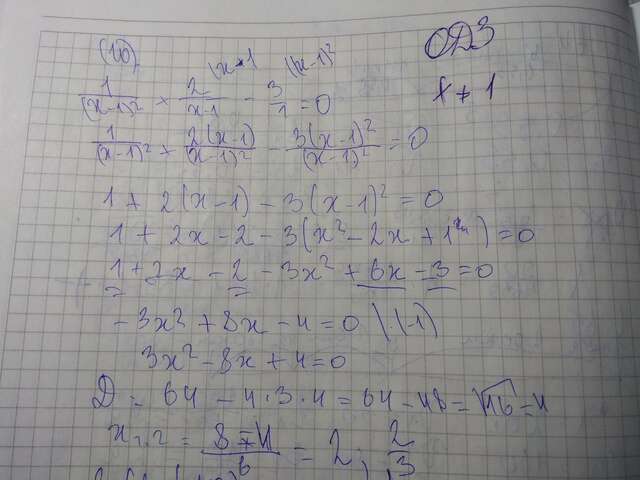 (10)
ОДЗ
x ≠ 1
1/(x-1)² + 2/(x-1) - 3/1 = 0
1/(x-1)² + 2(x-1)/(x-1)² - 3(x-1)²/(x-1)² = 0
1 + 2(x-1) - 3(x-1)² = 0
1 + 2x - 2 - 3(x² - 2x + 1) = 0
1 + 2x - 2 - 3x² + 6x - 3 = 0
-3x² + 8x - 4 = 0 | ·(-1)
3x² - 8x + 4 = 0
D = 64 - 4·3·4 = 64 - 48 = √16 = 4
x₁,₂ = (8 ∓ 4)/6 = 2; 2/3